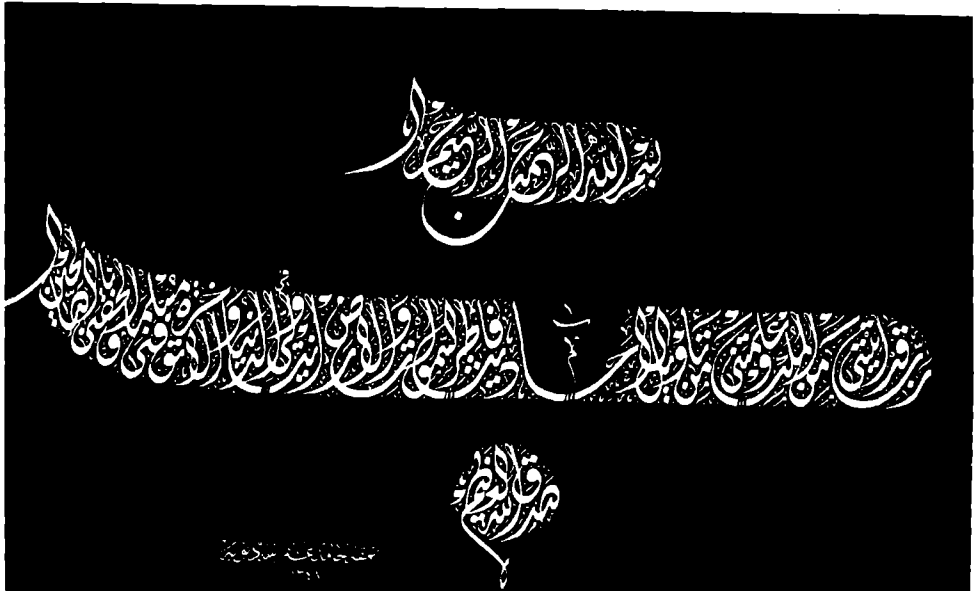 بسم الله الرحمن الرحيم
رب قد آتيتني من الملك وعلمتني من تأويل الأحاديث فاطر السموات والأرض أنت ولي في الدنيا والآخرة توفني مسلما وألحقني بالصالحين
صدق الله العظيم
١٣٤١